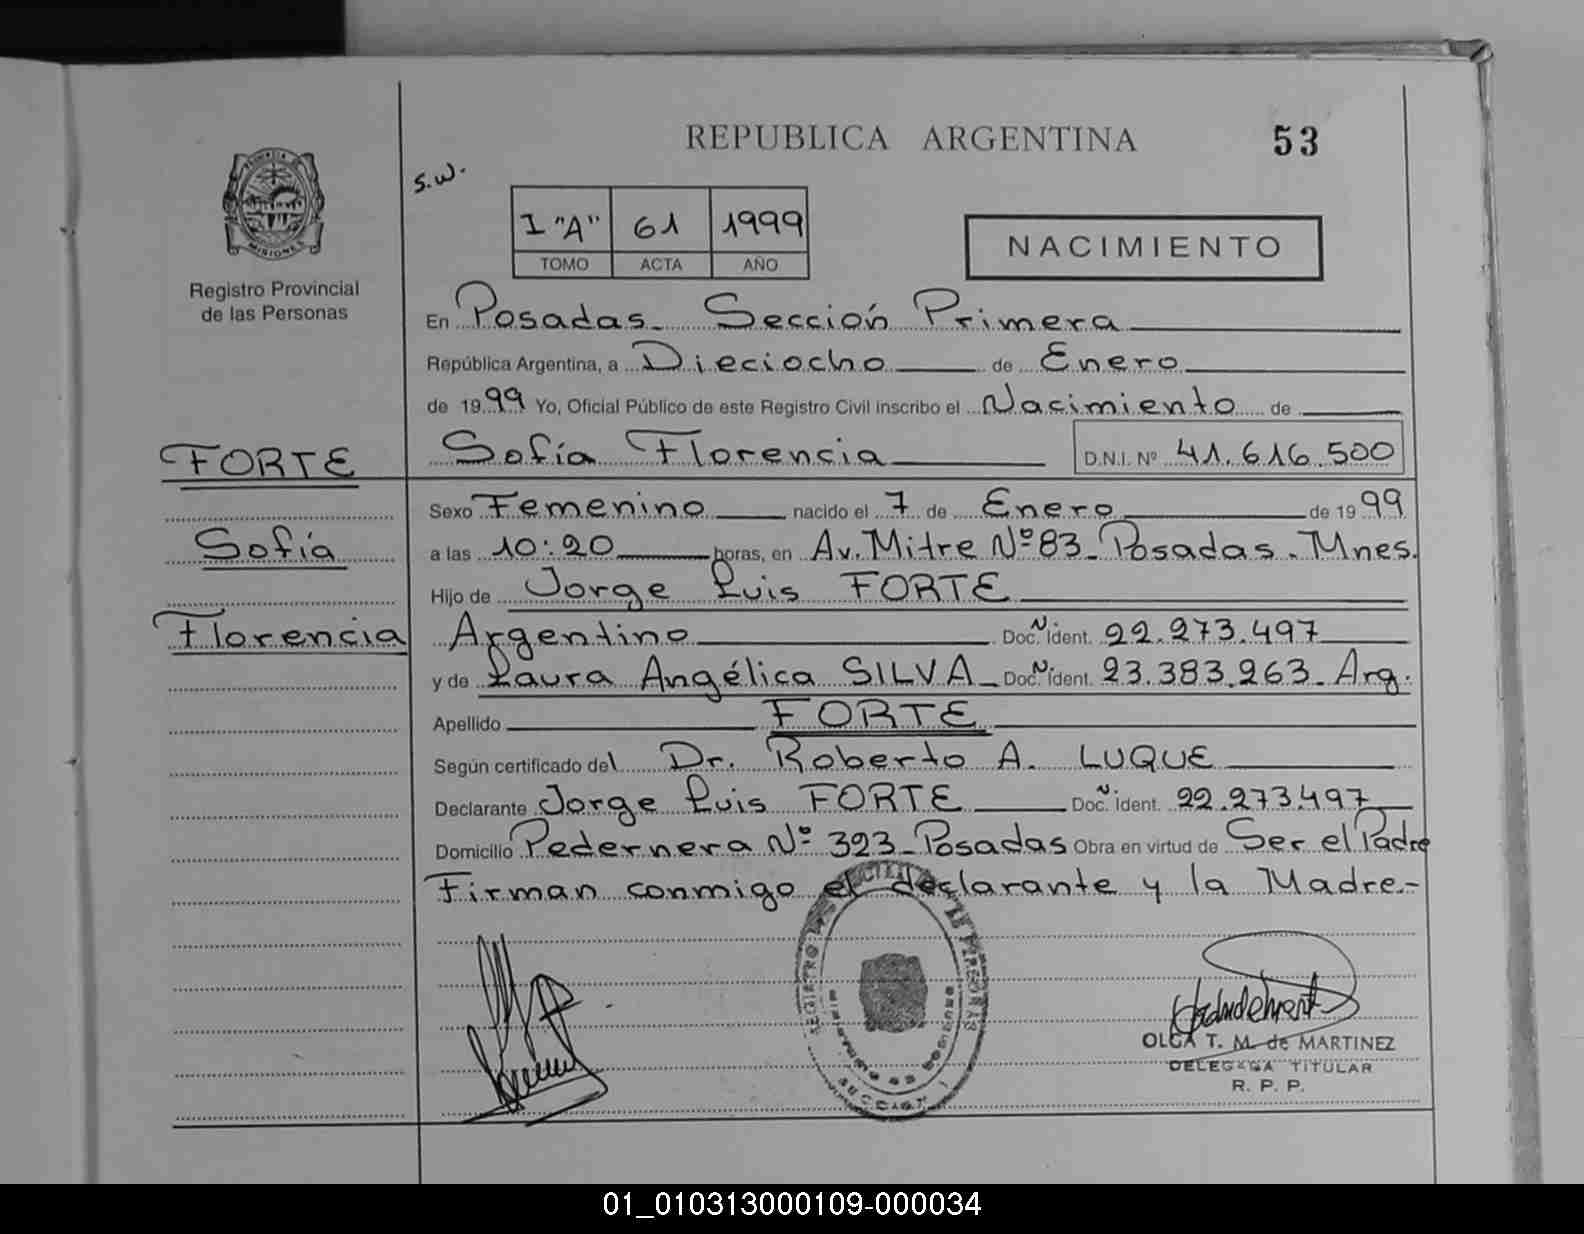 REPUBLICA ARGENTINA
53
s.w.
MISIONES
Registro Provincial
de las Personas
I "A" 61 1999
TOMO ACTA AÑO
NACIMIENTO
En Posadas Sección Primera
República Argentina, a Dieciocho de Enero
de 1999 Yo, Oficial Público de este Registro Civil inscribo el Nacimiento de
Sofía Florencia D.N.I. Nº 41.616.500
FORTE
Sofía
Florencia
Sexo Femenino nacido el 7 de Enero de 1999
a las 10:20 horas, en Av. Mitre Nº 83 - Posadas. Mnes.
Hijo de Jorge Luis FORTE
Argentino Doc. N Ident. 22.273.497
y de Laura Angélica SILVA - Doc. N Ident. 23.383.263 - Arg.
Apellido FORTE
Según certificado del Dr. Roberto A. LUQUE
Declarante Jorge Luis FORTE Doc. N Ident. 22.273.497
Domicilio Pedernera Nº 323 - Posadas Obra en virtud de Ser el Padre
Firman conmigo el declarante y la Madre.-
OLGA T. M. de MARTINEZ
DELEGADA TITULAR
R. P. P.
01_010313000109-000034